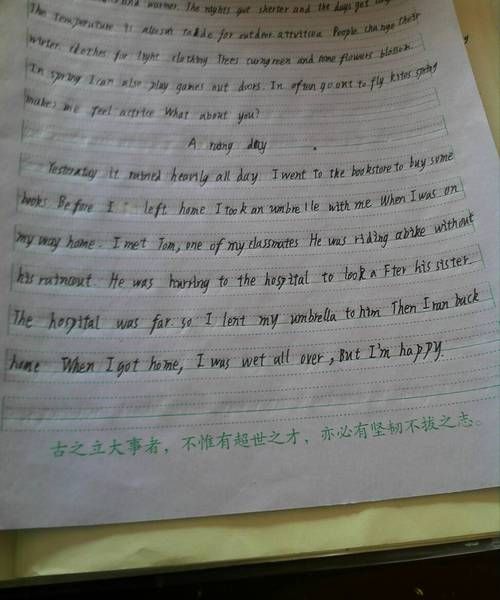 and warmer. The nights get shorter and the days get
The temperature is also for outdoor People change their
winter clothes for light clothing Trees turn green and flowers
In spring I can also play games out doors. In often go ont to fly kites spring
makes me feel What about you?
A day
Yesterday it rained heavily all day I went to the bookstore to buy some
books Before I left home I took an umbrella with me When I was on
my way home. I met Tom, one of my classmates He was riding a bike without
his raincout He was to the hospital to look a Fter his sister
The hospital was far. so I lent my umbrella to him Then I ran back
home When I got home, I was wet all over, But I'm happy.
古之立大事者，不惟有超世之才，亦必有坚韧不拔之志。